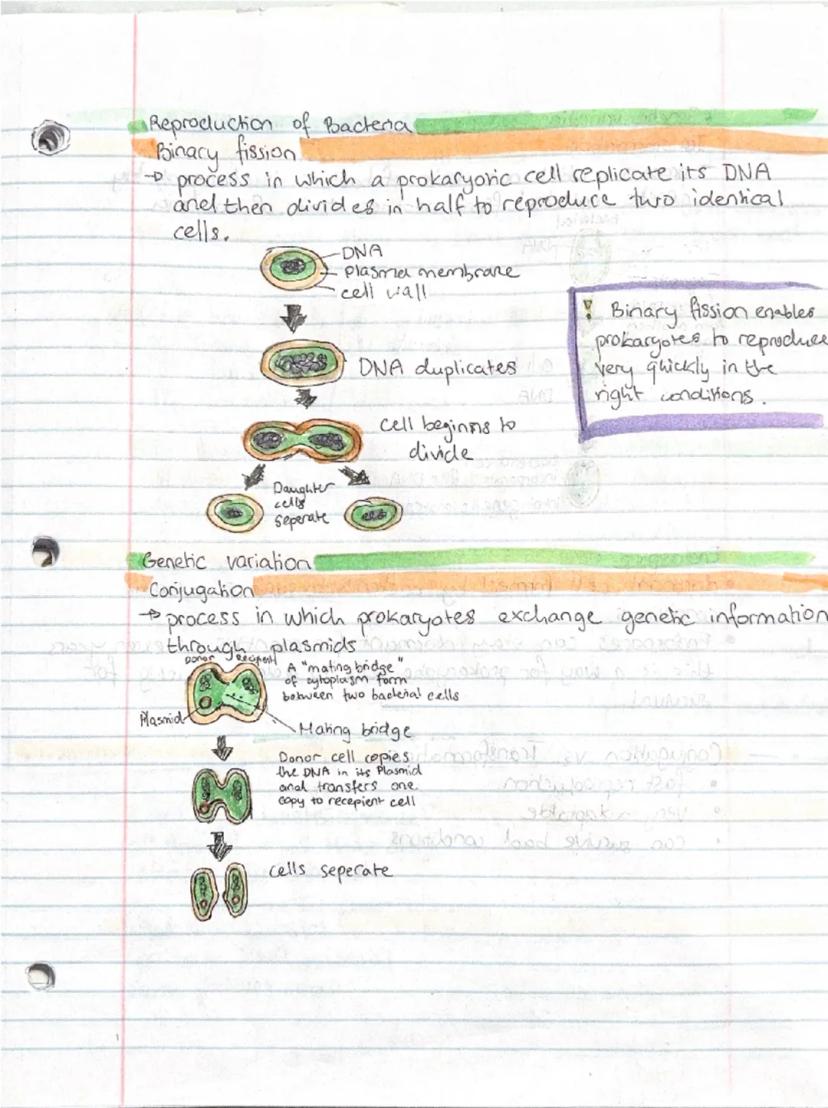 Reproduction of Bacteria
Binary fission
→ process in which a prokaryotic cell replicate its DNA
and then divides in half to reproduce two identical
cells.
DNA
Plasma membrane
cell wall
! Binary fission enables
prokaryotes to reproduce
very quickly in the
right conditions.
DNA duplicates
cell beginns to
divide
Daughter
cells
seperate
Genetic variation
Conjugation
→ process in which prokaryotes exchange genetic information
through plasmids
Donor Recipient
A "mating bridge"
of cytoplasm form
between two bacterial cells
Plasmid
Mating bridge
Donor cell copies
the DNA in its Plasmid
and transfers one
copy to recepient cell
cells seperate